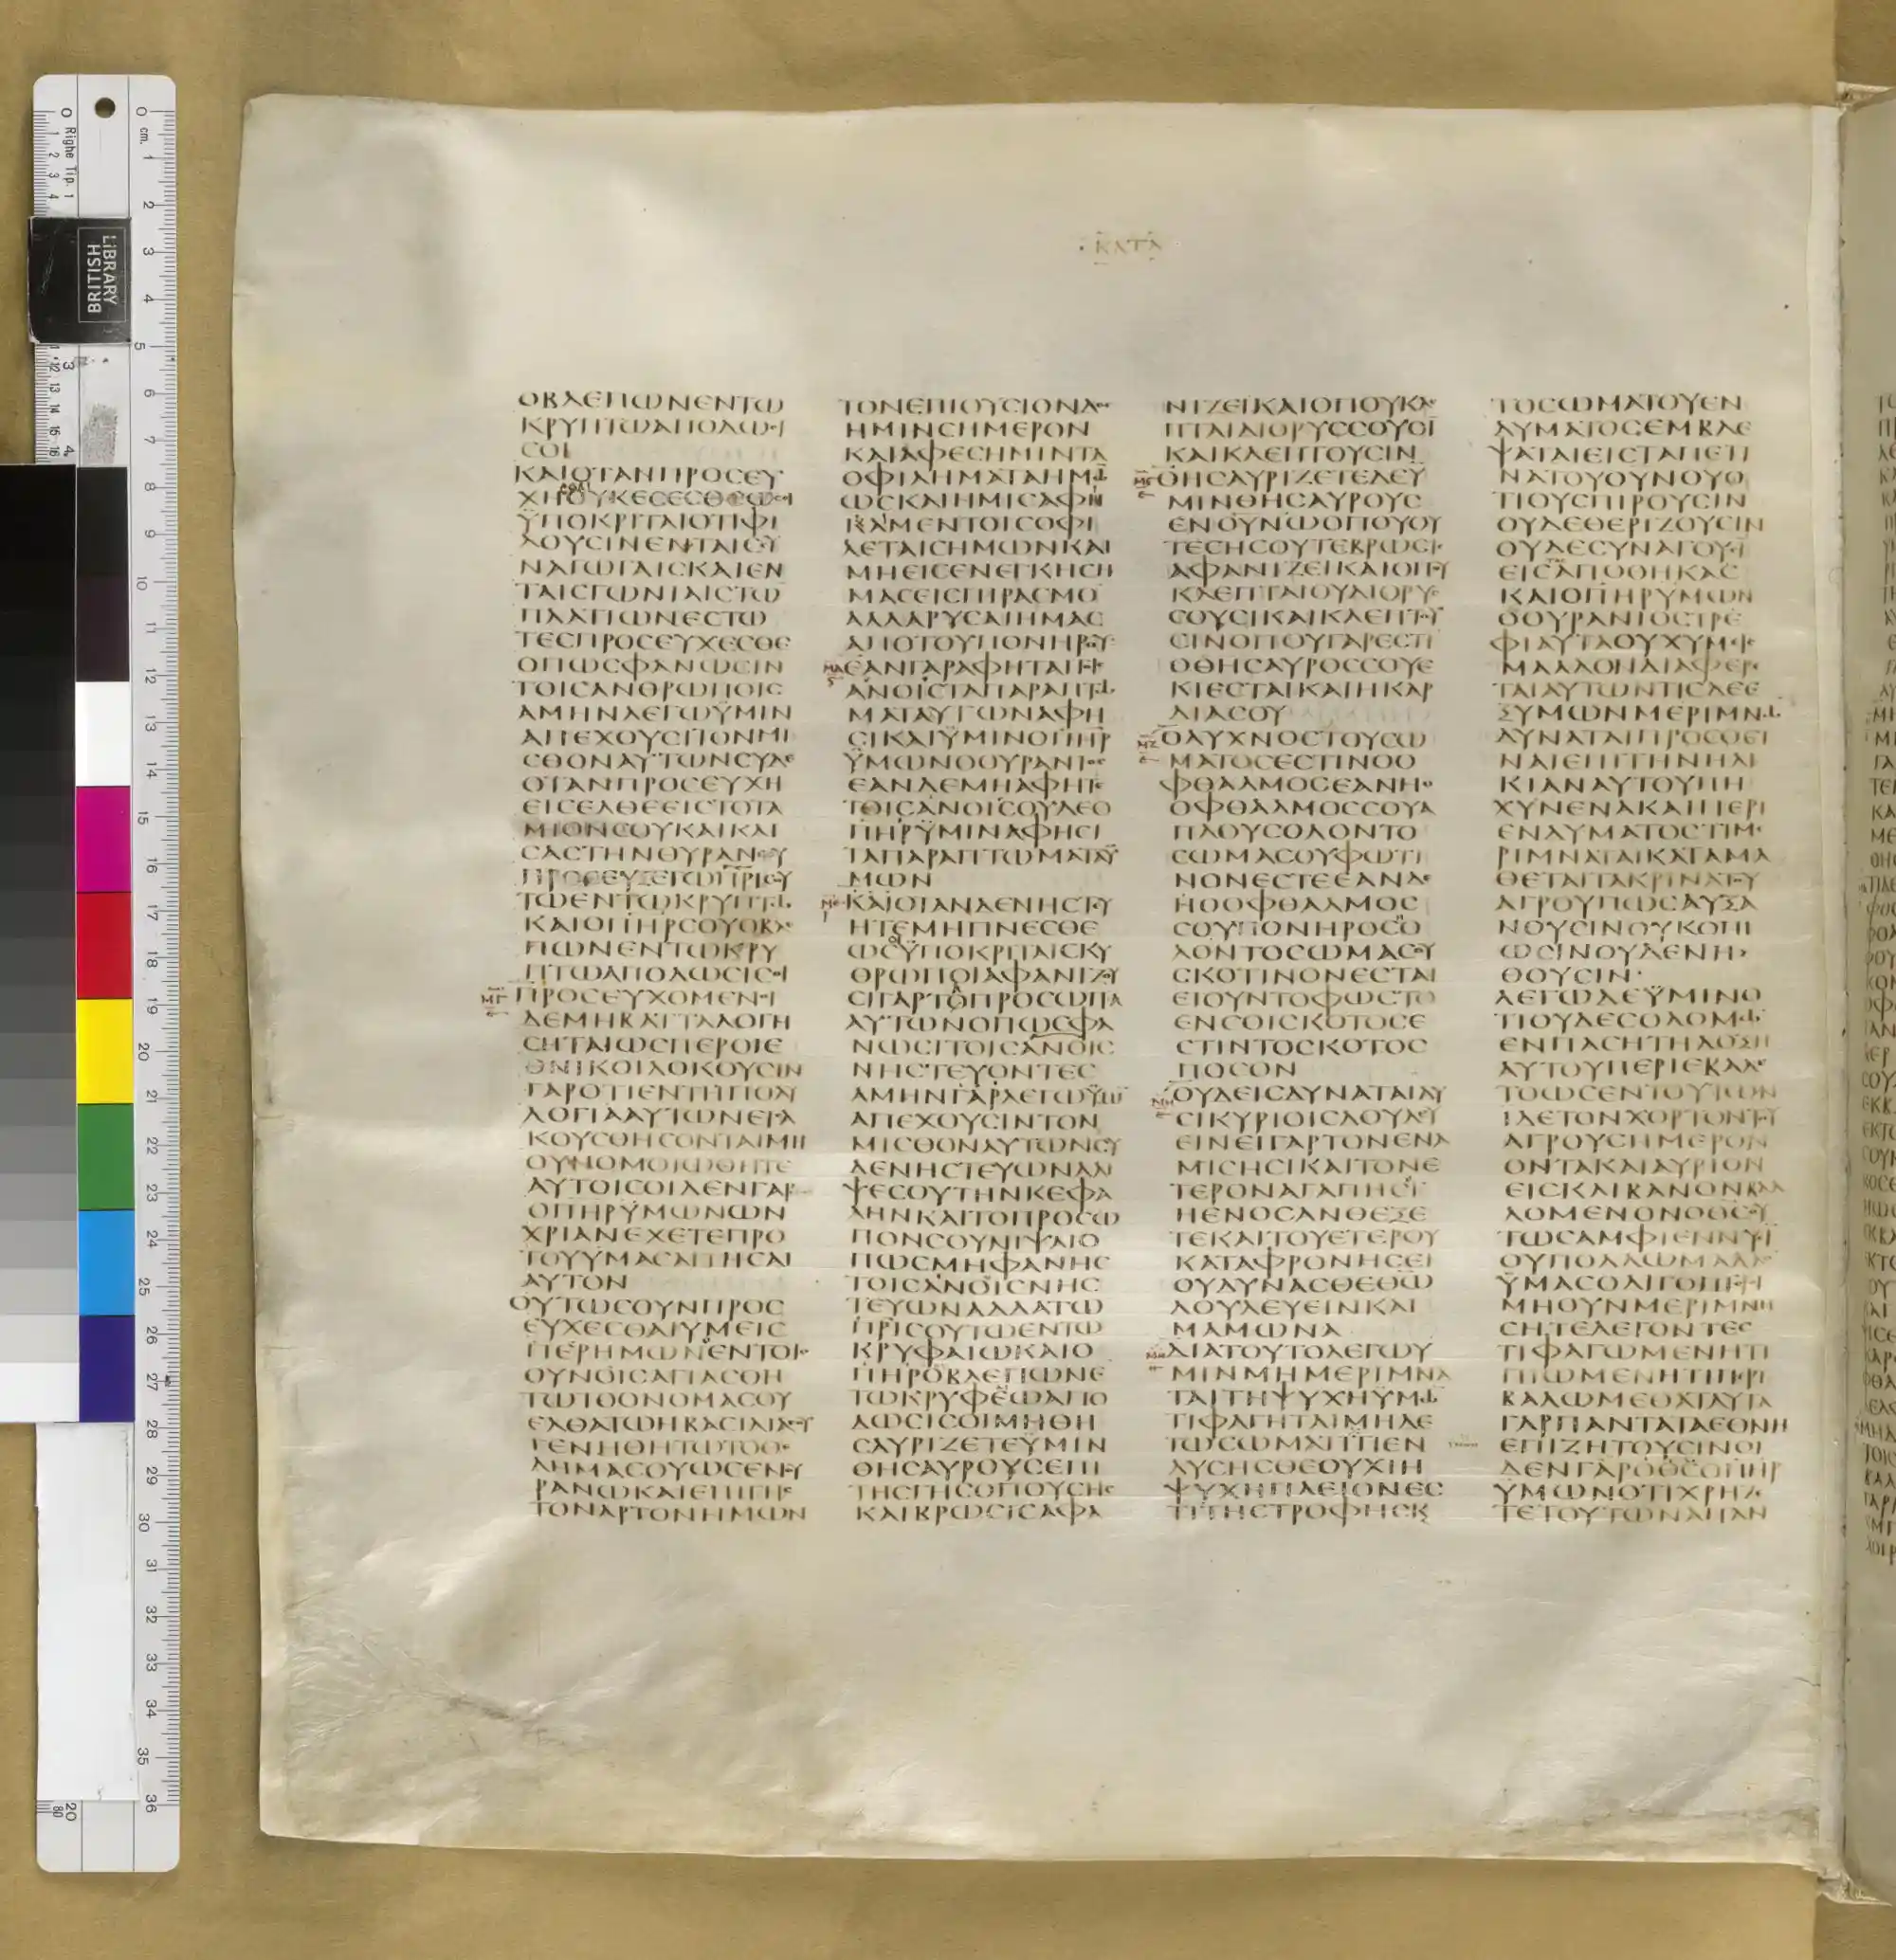 ΚΑΤΑ
ΟΒΛΕΠΩΝΕΝΤΩ
ΚΡΥΠΤΩΑΠΟΔΩϹΙ
ϹΟΙ
ΚΑΙΟΤΑΝΠΡΟϹΕΥ
ΧΗΟΥΚΕϹΕϹΘΕΩϹΟΙ
ΫΠΟΚΡΙΤΑΙΟΤΙΦΙ
ΛΟΥϹΙΝΕΝΤΑΙϹϹΥ
ΝΑΓΩΓΑΙϹΚΑΙΕΝ
ΤΑΙϹΓΩΝΙΑΙϹΤΩ
ΠΛΑΤΙΩΝΕϹΤΩ
ΤΕϹΠΡΟϹΕΥΧΕϹΘΕ
ΟΠΩϹΦΑΝΩϹΙΝ
ΤΟΙϹΑΝΘΡΩΠΟΙϹ
ΑΜΗΝΛΕΓΩΫΜΙΝ
ΑΠΕΧΟΥϹΙΤΟΝΜΙ
ϹΘΟΝΑΥΤΩΝϹΥΔΕ
ΟΤΑΝΠΡΟϹΕΥΧΗ
ΕΙϹΕΛΘΕΕΙϹΤΟΤΑ
ΜΙΟΝϹΟΥΚΑΙΚΛΙ
ϹΑϹΤΗΝΘΥΡΑΝϹΟΥ
ΠΡΟϹΕΥΞΕΤΩΠΡΙϹΟΥ
ΤΩΕΝΤΩΚΡΥΠΤΩ
ΚΑΙΟΠΗΡϹΟΥΟΒΛΕ
ΠΩΝΕΝΤΩΚΡΥ
ΠΤΩΑΠΟΔΩϹΙϹΟΙ
ΜΓ
ΠΡΟϹΕΥΧΟΜΕΝΟΙ
ΔΕΜΗΒΑΤΤΑΛΟΓΗ
ϹΗΤΑΙΩϹΠΕΡΟΙΕ
ΘΝΙΚΟΙΔΟΚΟΥϹΙΝ
ΓΑΡΟΤΙΕΝΤΗΠΟΛΥ
ΛΟΓΙΑΑΥΤΩΝΕΙϹΑ
ΚΟΥϹΘΗϹΟΝΤΑΙΜΗ
ΟΥΝΟΜΟΙΩΘΗΤΕ
ΑΥΤΟΙϹΟΙΔΕΝΓΑΡ
ΟΠΗΡΫΜΩΝΩΝ
ΧΡΙΑΝΕΧΕΤΕΠΡΟ
ΤΟΥΫΜΑϹΑΙΤΗϹΑΙ
ΑΥΤΟΝ
ΟΥΤΩϹΟΥΝΠΡΟϹ
ΕΥΧΕϹΘΑΙΥΜΕΙϹ
ΠΕΡΗΜΩΝΕΝΤΟΙϹ
ΟΥΝΟΙϹΑΓΙΑϹΘΗ
ΤΩΤΟΟΝΟΜΑϹΟΥ
ΕΛΘΑΤΩΗΒΑϹΙΛΙΑϹΟΥ
ΓΕΝΗΘΗΤΩΤΟΘΕ
ΛΗΜΑϹΟΥΩϹΕΝΟΥ
ΡΑΝΩΚΑΙΕΠΙΓΗϹ
ΤΟΝΑΡΤΟΝΗΜΩΝ
ΤΟΝΕΠΙΟΥϹΙΟΝΔΟϹ
ΗΜΙΝϹΗΜΕΡΟΝ
ΚΑΙΑΦΕϹΗΜΙΝΤΑ
ΟΦΙΛΗΜΑΤΑΗΜΩ
ΩϹΚΑΙΗΜΙϹΑΦΗ
ΚΑΜΕΝΤΟΙϹΟΦΙ
ΛΕΤΑΙϹΗΜΩΝΚΑΙ
ΜΗΕΙϹΕΝΕΓΚΗϹΗ
ΜΑϹΕΙϹΠΙΡΑϹΜΟ
ΑΛΛΑΡΥϹΑΙΗΜΑϹ
ΑΠΟΤΟΥΠΟΝΗΡΟΥ
ΜΔ
ΕΑΝΓΑΡΑΦΗΤΑΙΤΟΙϹ
ΑΝΟΙϹΤΑΠΑΡΑΠΤΩ
ΜΑΤΑΑΥΤΩΝΑΦΗ
ϹΙΚΑΙΫΜΙΝΟΠΗΡ
ΫΜΩΝΟΟΥΡΑΝΙΟϹ
ΕΑΝΔΕΜΗΑΦΗΤΕ
ΤΟΙϹΑΝΟΙϹΟΥΔΕΟ
ΠΗΡΫΜΙΝΑΦΗϹΙ
ΤΑΠΑΡΑΠΤΩΜΑΤΑΫ
ΜΩΝ
ΜΕ
ΚΑΙΟΤΑΝΔΕΝΗϹΤΕΥ
ΗΤΕΜΗΓΙΝΕϹΘΕ
ΩϹΫΠΟΚΡΙΤΑΙϹΚΥ
ΘΡΩΠΟΙΑΦΑΝΙΖΟΥ
ϹΙΓΑΡΤΟΠΡΟϹΩΠΑ
ΑΥΤΩΝΟΠΩϹΦΑ
ΝΩϹΙΤΟΙϹΑΝΟΙϹ
ΝΗϹΤΕΥΟΝΤΕϹ
ΑΜΗΝΓΑΡΛΕΓΩΫΜΙ
ΑΠΕΧΟΥϹΙΝΤΟΝ
ΜΙϹΘΟΝΑΥΤΩΝϹΥ
ΔΕΝΗϹΤΕΥΩΝΑΛΙ
ΨΕϹΟΥΤΗΝΚΕΦΑ
ΛΗΝΚΑΙΤΟΠΡΟϹΩ
ΠΟΝϹΟΥΝΙΨΑΙΟ
ΠΩϹΜΗΦΑΝΗϹ
ΤΟΙϹΑΝΟΙϹΝΗϹ
ΤΕΥΩΝΑΛΛΑΤΩ
ΠΡΙϹΟΥΤΩΕΝΤΩ
ΚΡΥΦΑΙΩΚΑΙΟ
ΠΗΡΟΒΛΕΠΩΝΕ
ΤΩΚΡΥΦΕΩΑΠΟ
ΔΩϹΙϹΟΙΜΗΘΗ
ϹΑΥΡΙΖΕΤΕΫΜΙΝ
ΘΗϹΑΥΡΟΥϹΕΠΙ
ΤΗϹΓΗϹΟΠΟΥϹΗϹ
ΚΑΙΒΡΩϹΙϹΑΦΑ
ΝΙΖΕΙΚΑΙΟΠΟΥΚΛΕ
ΠΤΑΙΔΙΟΡΥϹϹΟΥϹΙ
ΚΑΙΚΛΕΠΤΟΥϹΙΝ
ΜϚ
ΘΗϹΑΥΡΙΖΕΤΕΔΕΫ
ΜΙΝΘΗϹΑΥΡΟΥϹ
ΕΝΟΥΝΩΟΠΟΥΟΥ
ΤΕϹΗϹΟΥΤΕΒΡΩϹΙϹ
ΑΦΑΝΙΖΕΙΚΑΙΟΠΟΥ
ΚΛΕΠΤΑΙΟΥΔΙΟΡΥϹ
ϹΟΥϹΙΚΑΙΚΛΕΠΤΟΥ
ϹΙΝΟΠΟΥΓΑΡΕϹΤΙ
ΟΘΗϹΑΥΡΟϹϹΟΥΕ
ΚΙΕϹΤΑΙΚΑΙΗΚΑΡ
ΔΙΑϹΟΥ
ΜΖ
ΟΛΥΧΝΟϹΤΟΥϹΩ
ΜΑΤΟϹΕϹΤΙΝΟΟ
ΦΘΑΛΜΟϹΕΑΝΗΟ
ΟΦΘΑΛΜΟϹϹΟΥΑ
ΠΛΟΥϹΟΛΟΝΤΟ
ϹΩΜΑϹΟΥΦΩΤΙ
ΝΟΝΕϹΤΕΕΑΝΔΕ
ΗΟΟΦΘΑΛΜΟϹ
ϹΟΥΠΟΝΗΡΟϹΟ
ΛΟΝΤΟϹΩΜΑϹΟΥ
ϹΚΟΤΙΝΟΝΕϹΤΑΙ
ΕΙΟΥΝΤΟΦΩϹΤΟ
ΕΝϹΟΙϹΚΟΤΟϹΕ
ϹΤΙΝΤΟϹΚΟΤΟϹ
ΠΟϹΟΝ
ΜΗ
ΟΥΔΕΙϹΔΥΝΑΤΑΙΔΥ
ϹΙΚΥΡΙΟΙϹΔΟΥΛΕΥ
ΕΙΝΕΙΓΑΡΤΟΝΕΝΑ
ΜΙϹΗϹΙΚΑΙΤΟΝΕ
ΤΕΡΟΝΑΓΑΠΗϹΙ
ΗΕΝΟϹΑΝΘΕΞΕ
ΤΕΚΑΙΤΟΥΕΤΕΡΟΥ
ΚΑΤΑΦΡΟΝΗϹΕΙ
ΟΥΔΥΝΑϹΘΕΘΩ
ΔΟΥΛΕΥΕΙΝΚΑΙ
ΜΑΜΩΝΑ
ΜΘ
ΔΙΑΤΟΥΤΟΛΕΓΩΥ
ΜΙΝΜΗΜΕΡΙΜΝΑ
ΤΑΙΤΗΨΥΧΗΫΜΩ
ΤΙΦΑΓΗΤΑΙΜΗΔΕ
ΤΩϹΩΜΑΤΙΤΙΕΝ
ΔΥϹΗϹΘΕΟΥΧΙΗ
ΨΥΧΗΠΛΕΙΟΝΕϹ
ΤΙΤΗϹΤΡΟΦΗϹΚ
ΤΟϹΩΜΑΤΟΥΕΝ
ΔΥΜΑΤΟϹΕΜΒΛΕ
ΨΑΤΑΙΕΙϹΤΑΠΕΤΙ
ΝΑΤΟΥΟΥΝΟΥΟ
ΤΙΟΥϹΠΙΡΟΥϹΙΝ
ΟΥΔΕΘΕΡΙΖΟΥϹΙΝ
ΟΥΔΕϹΥΝΑΓΟΥϹΙ
ΕΙϹΑΠΟΘΗΚΑϹ
ΚΑΙΟΠΗΡΥΜΩΝ
ΟΟΥΡΑΝΙΟϹΤΡΕ
ΦΙΑΥΤΑΟΥΧΥΜΕΙϹ
ΜΑΛΛΟΝΔΙΑΦΕΡΕ
ΤΑΙΑΥΤΩΝΤΙϹΔΕΕ
ΞΥΜΩΝΜΕΡΙΜΝΩ
ΔΥΝΑΤΑΙΠΡΟϹΘΕΙ
ΝΑΙΕΠΙΤΗΝΗΛΙ
ΚΙΑΝΑΥΤΟΥΠΗ
ΧΥΝΕΝΑΚΑΙΠΕΡΙ
ΕΝΔΥΜΑΤΟϹΤΙΜΕ
ΡΙΜΝΑΤΑΙΚΑΤΑΜΑ
ΘΕΤΑΙΤΑΚΡΙΝΑΤΟΥ
ΑΓΡΟΥΠΩϹΑΥΞΑ
ΝΟΥϹΙΝΟΥΚΟΠΙ
ΩϹΙΝΟΥΔΕΝΗ
ΘΟΥϹΙΝ·
ΛΕΓΩΔΕΫΜΙΝΟ
ΤΙΟΥΔΕϹΟΛΟΜΩ
ΕΝΠΑϹΗΤΗΔΟΞΗ
ΑΥΤΟΥΠΕΡΙΕΒΑΛΕ
ΤΟΩϹΕΝΤΟΥΤΩΝ
ΙΔΕΤΟΝΧΟΡΤΟΝΤΟΥ
ΑΓΡΟΥϹΗΜΕΡΟΝ
ΟΝΤΑΚΑΙΑΥΡΙΟΝ
ΕΙϹΚΛΙΒΑΝΟΝΒΑΛ
ΛΟΜΕΝΟΝΟΘϹΟΥ
ΤΩϹΑΜΦΙΕΝΝΥϹΙ
ΟΥΠΟΛΛΩΜΑΛΛΟ
ΫΜΑϹΟΛΙΓΟΠΙϹΤΟΙ
ΜΗΟΥΝΜΕΡΙΜΝΗ
ϹΗΤΕΛΕΓΟΝΤΕϹ
ΤΙΦΑΓΩΜΕΝΗΤΙ
ΠΙΩΜΕΝΗΤΙΠΕΡΙ
ΒΑΛΩΜΕΘΑΤΑΥΤΑ
ΓΑΡΠΑΝΤΑΤΑΕΘΝΗ
ΕΠΙΖΗΤΟΥϹΙΝΟΙ
ΔΕΝΓΑΡΟΘϹΟΠΗΡ
ΥΜΩΝΟΤΙΧΡΗΖΕ
ΤΕΤΟΥΤΩΝΑΠΑΝ
BRITISH
LIBRARY